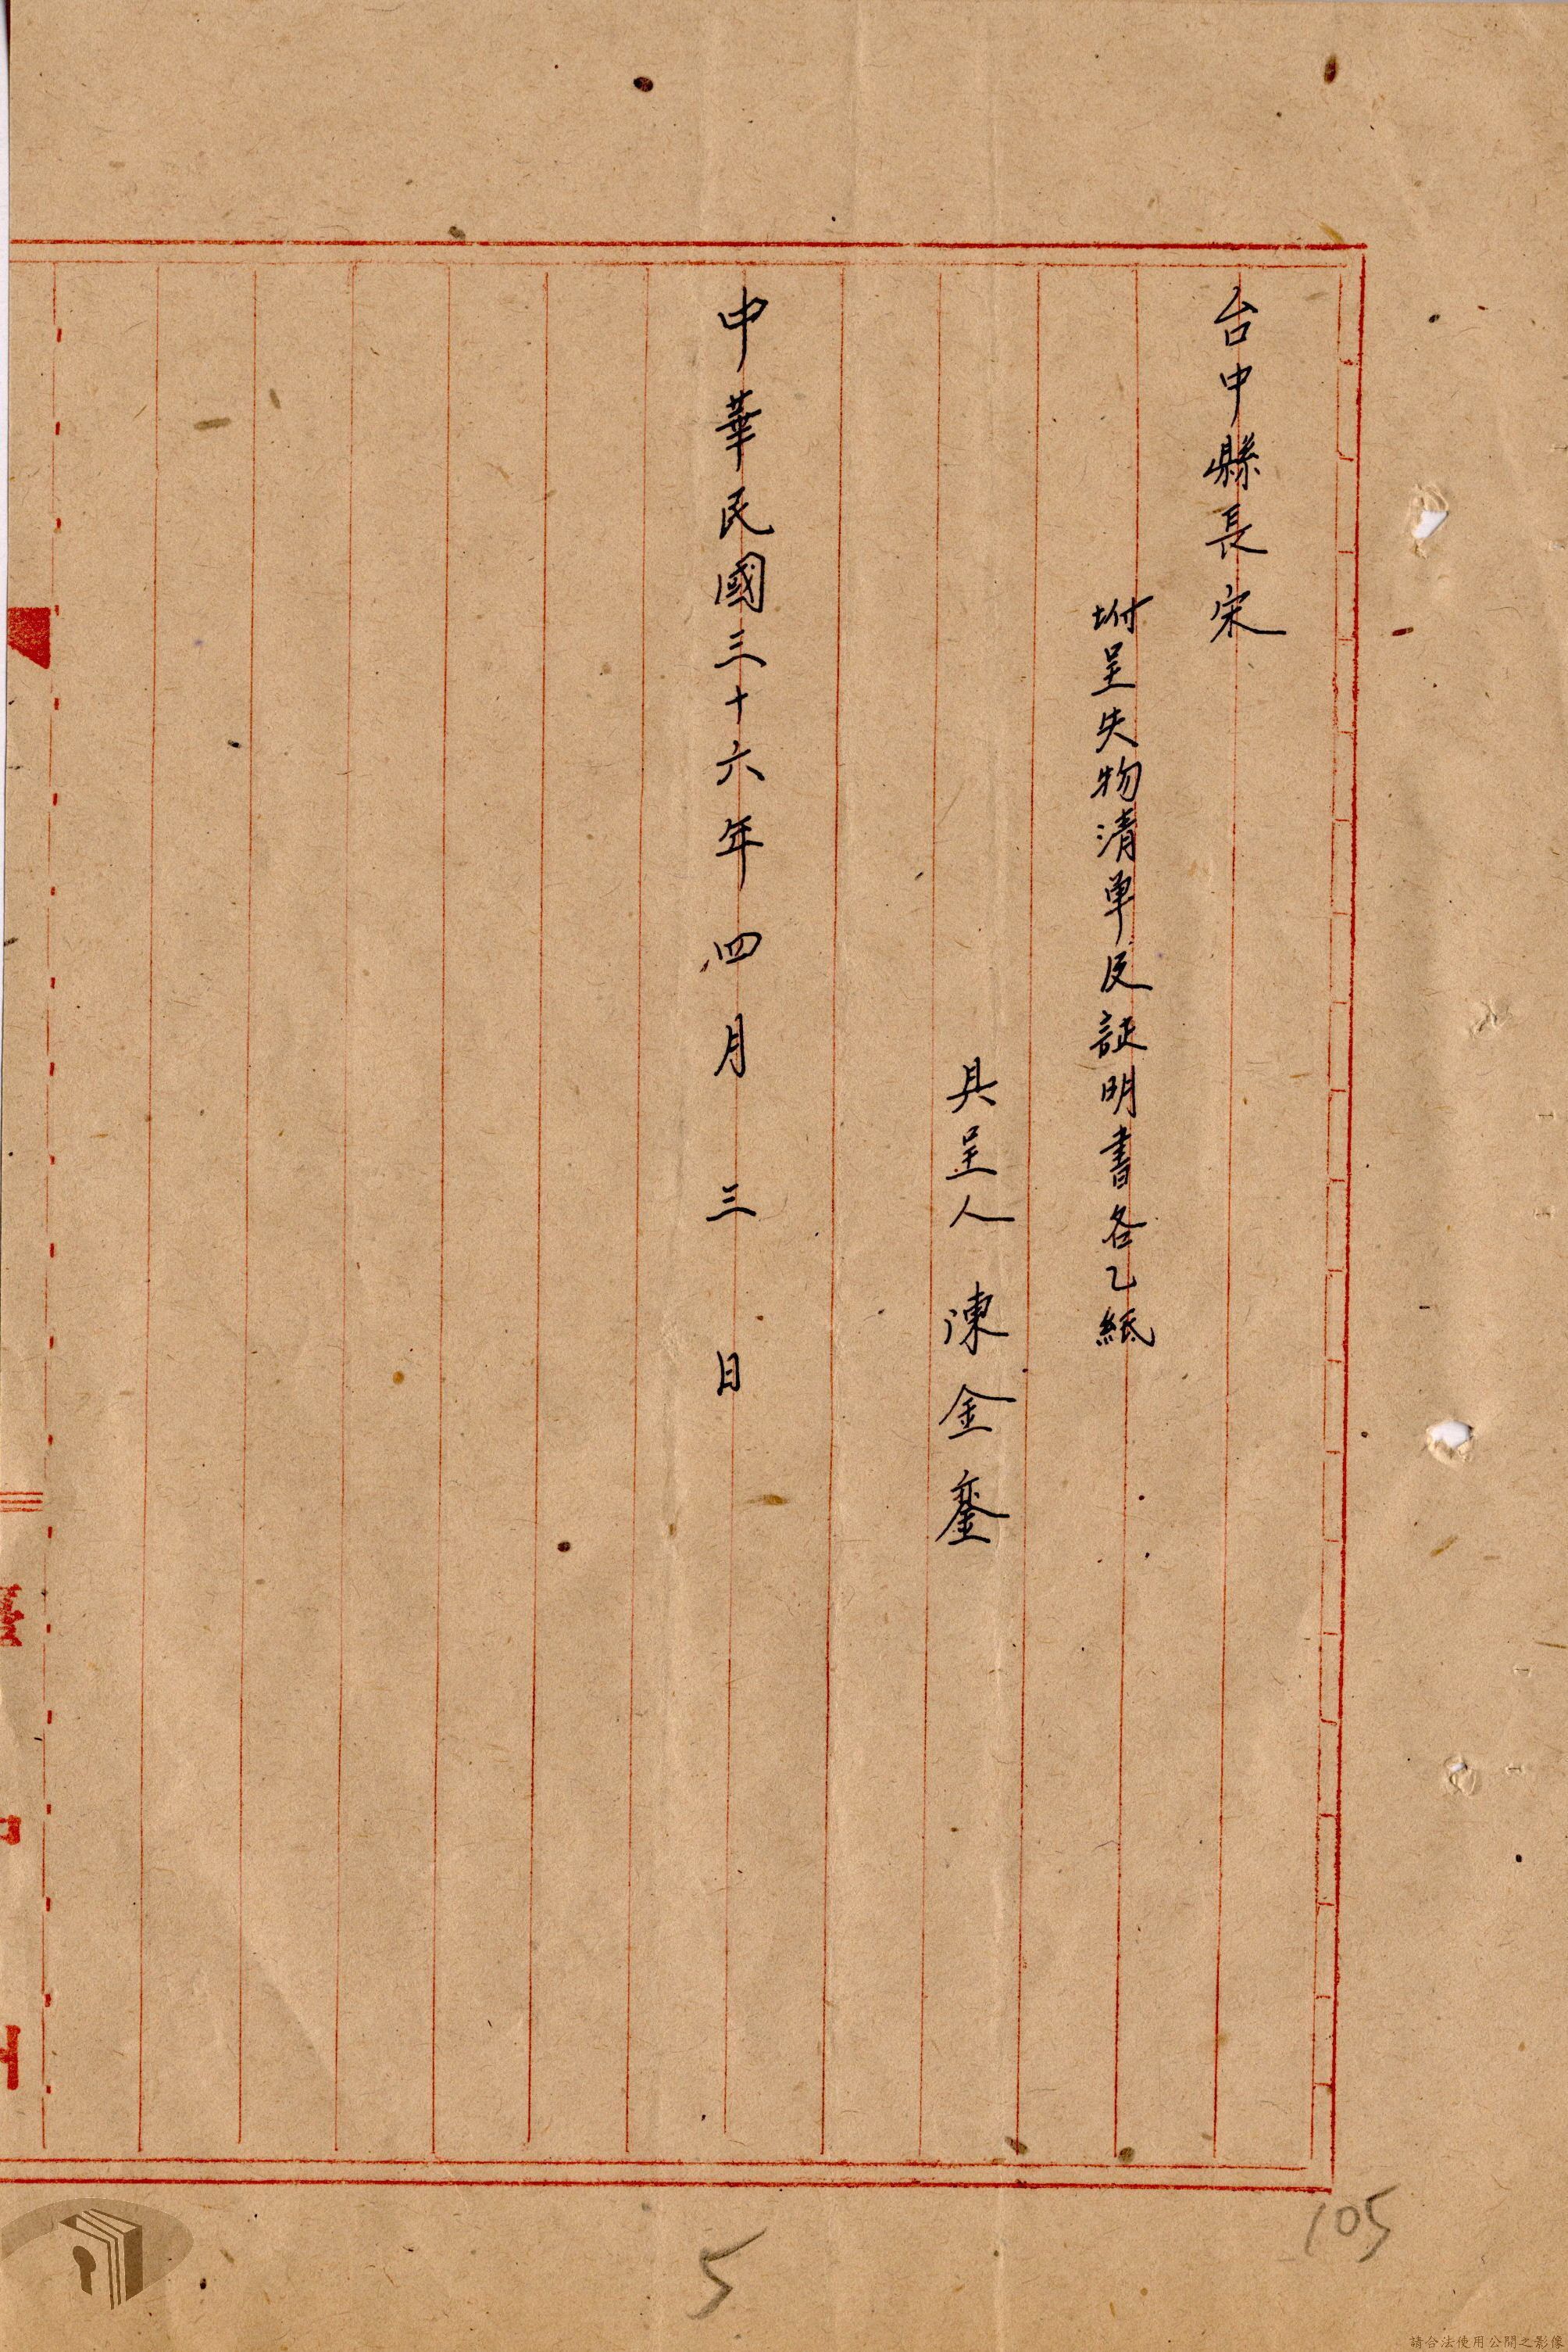 台中縣長宋
坿呈失物清单及証明書各乙紙
具呈人 陳金鍫
中華民國三十六年四月三日
105
5
請合法使用公開之影像